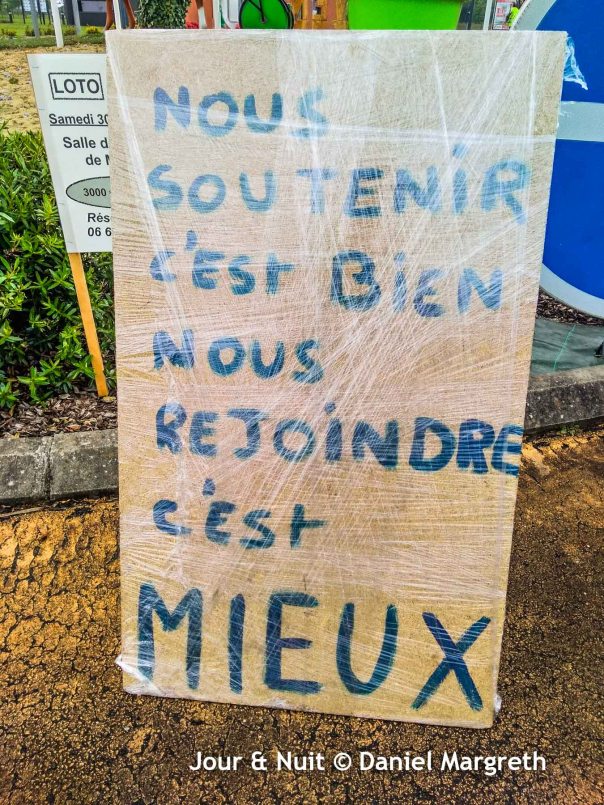 LOTO
Samedi 30
Salle d
de
3000
Rés
06 6
NOUS
SOUTENIR
c'est BIEN
NOUS
REJOINDRE
c'est
MIEUX
Jour & Nuit © Daniel Margreth